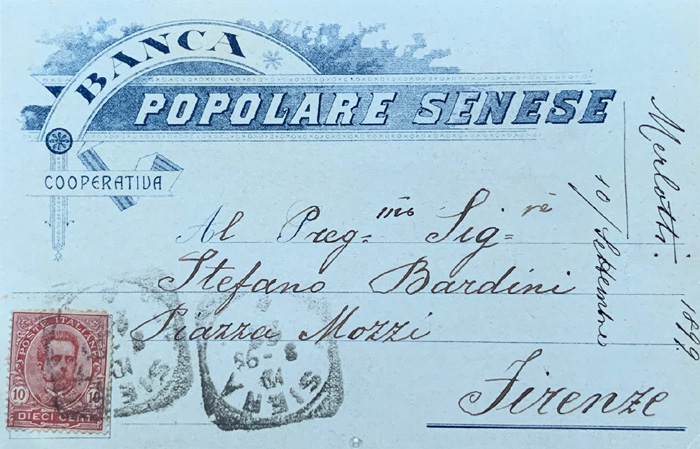 BANCA
POPOLARE SENESE
COOPERATIVA
Al Preg.mo Sig.re
Stefano Bardini
Piazza Mozzi
Firenze
Merlotti.
10/Settembre
POSTE ITALIANE
10 10
DIECI CENT.
SIENA
SIENA